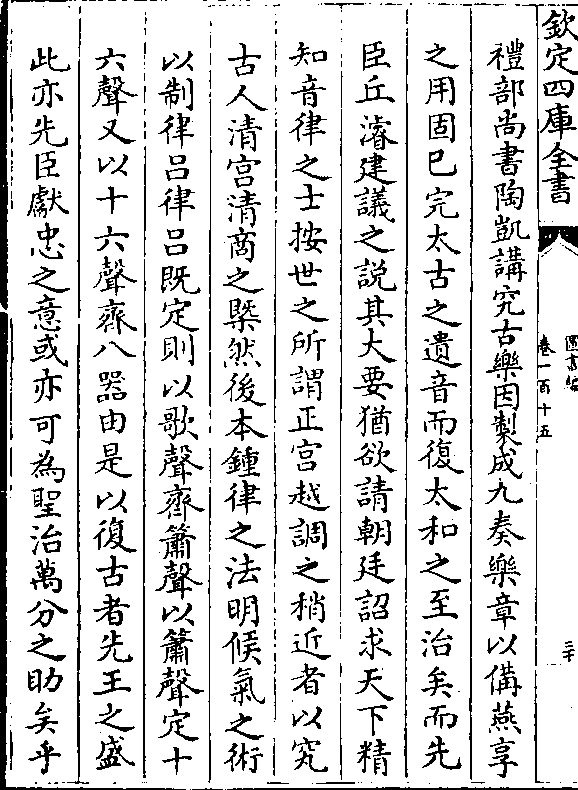 欽定四庫全書
圖書編
卷一百十五
三十
禮部尚書陶凱講究古樂因製成九奏樂章以備燕享
之用固已完太古之遺音而復太和之至治矣而先
臣丘濬建議之說其大要猶欲請朝廷詔求天下精
知音律之士按世之所謂正宮越調之稍近者以究
古人清宮清商之槩然後本鍾律之法明候氣之術
以制律呂律呂既定則以歌聲齊簫聲以簫聲定十
六聲又以十六聲齊八器由是以復古者先王之盛
此亦先臣獻忠之意或亦可為聖治萬分之助矣乎